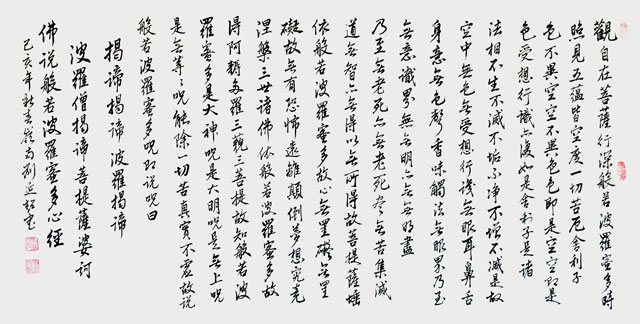 觀自在菩薩行深般若波羅蜜多時
照見五蘊皆空度一切苦厄舍利子
色不異空空不異色色即是空空即是
色受想行識亦復如是舍利子是諸
法相不生不滅不垢不淨不增不減是故
空中無色無受想行識無眼耳鼻舌
身意無色聲香味觸法無眼界乃至
無意識界無無明亦無無明盡
乃至無老死亦無老死盡無苦集滅
道無智亦無得以無所得故菩提薩埵
依般若波羅蜜多故心無罣礙無罣
礙故無有恐怖遠離顛倒夢想究竟
涅槃三世諸佛依般若波羅蜜多故
得阿耨多羅三藐三菩提故知般若波
羅蜜多是大神咒是大明咒是無上咒
是無等等咒能除一切苦真實不虛故說
般若波羅蜜多咒即說咒曰
揭諦揭諦 波羅揭諦
波羅僧揭諦 菩提薩婆訶
佛說般若波羅蜜多心經
己亥年 嶺南劉